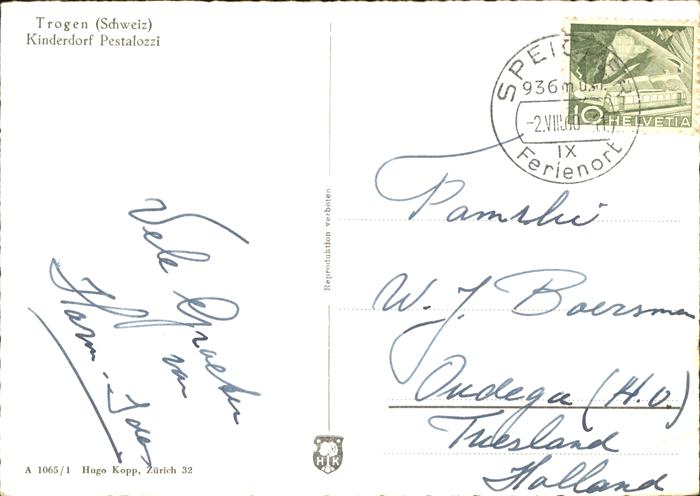 Trogen (Schweiz)
Kinderdorf Pestalozzi
SPEICHER
936 m ü.M.
-2.VIII.60
IX
Ferienort
10 HELVETIA
Reproduktion verboten
Vele Groeten
van
Harm-Ides
Familie
W. J. Boersma
Oudega (H.O.)
Friesland
Holland
H K
A 1065/1 Hugo Kopp, Zürich 32